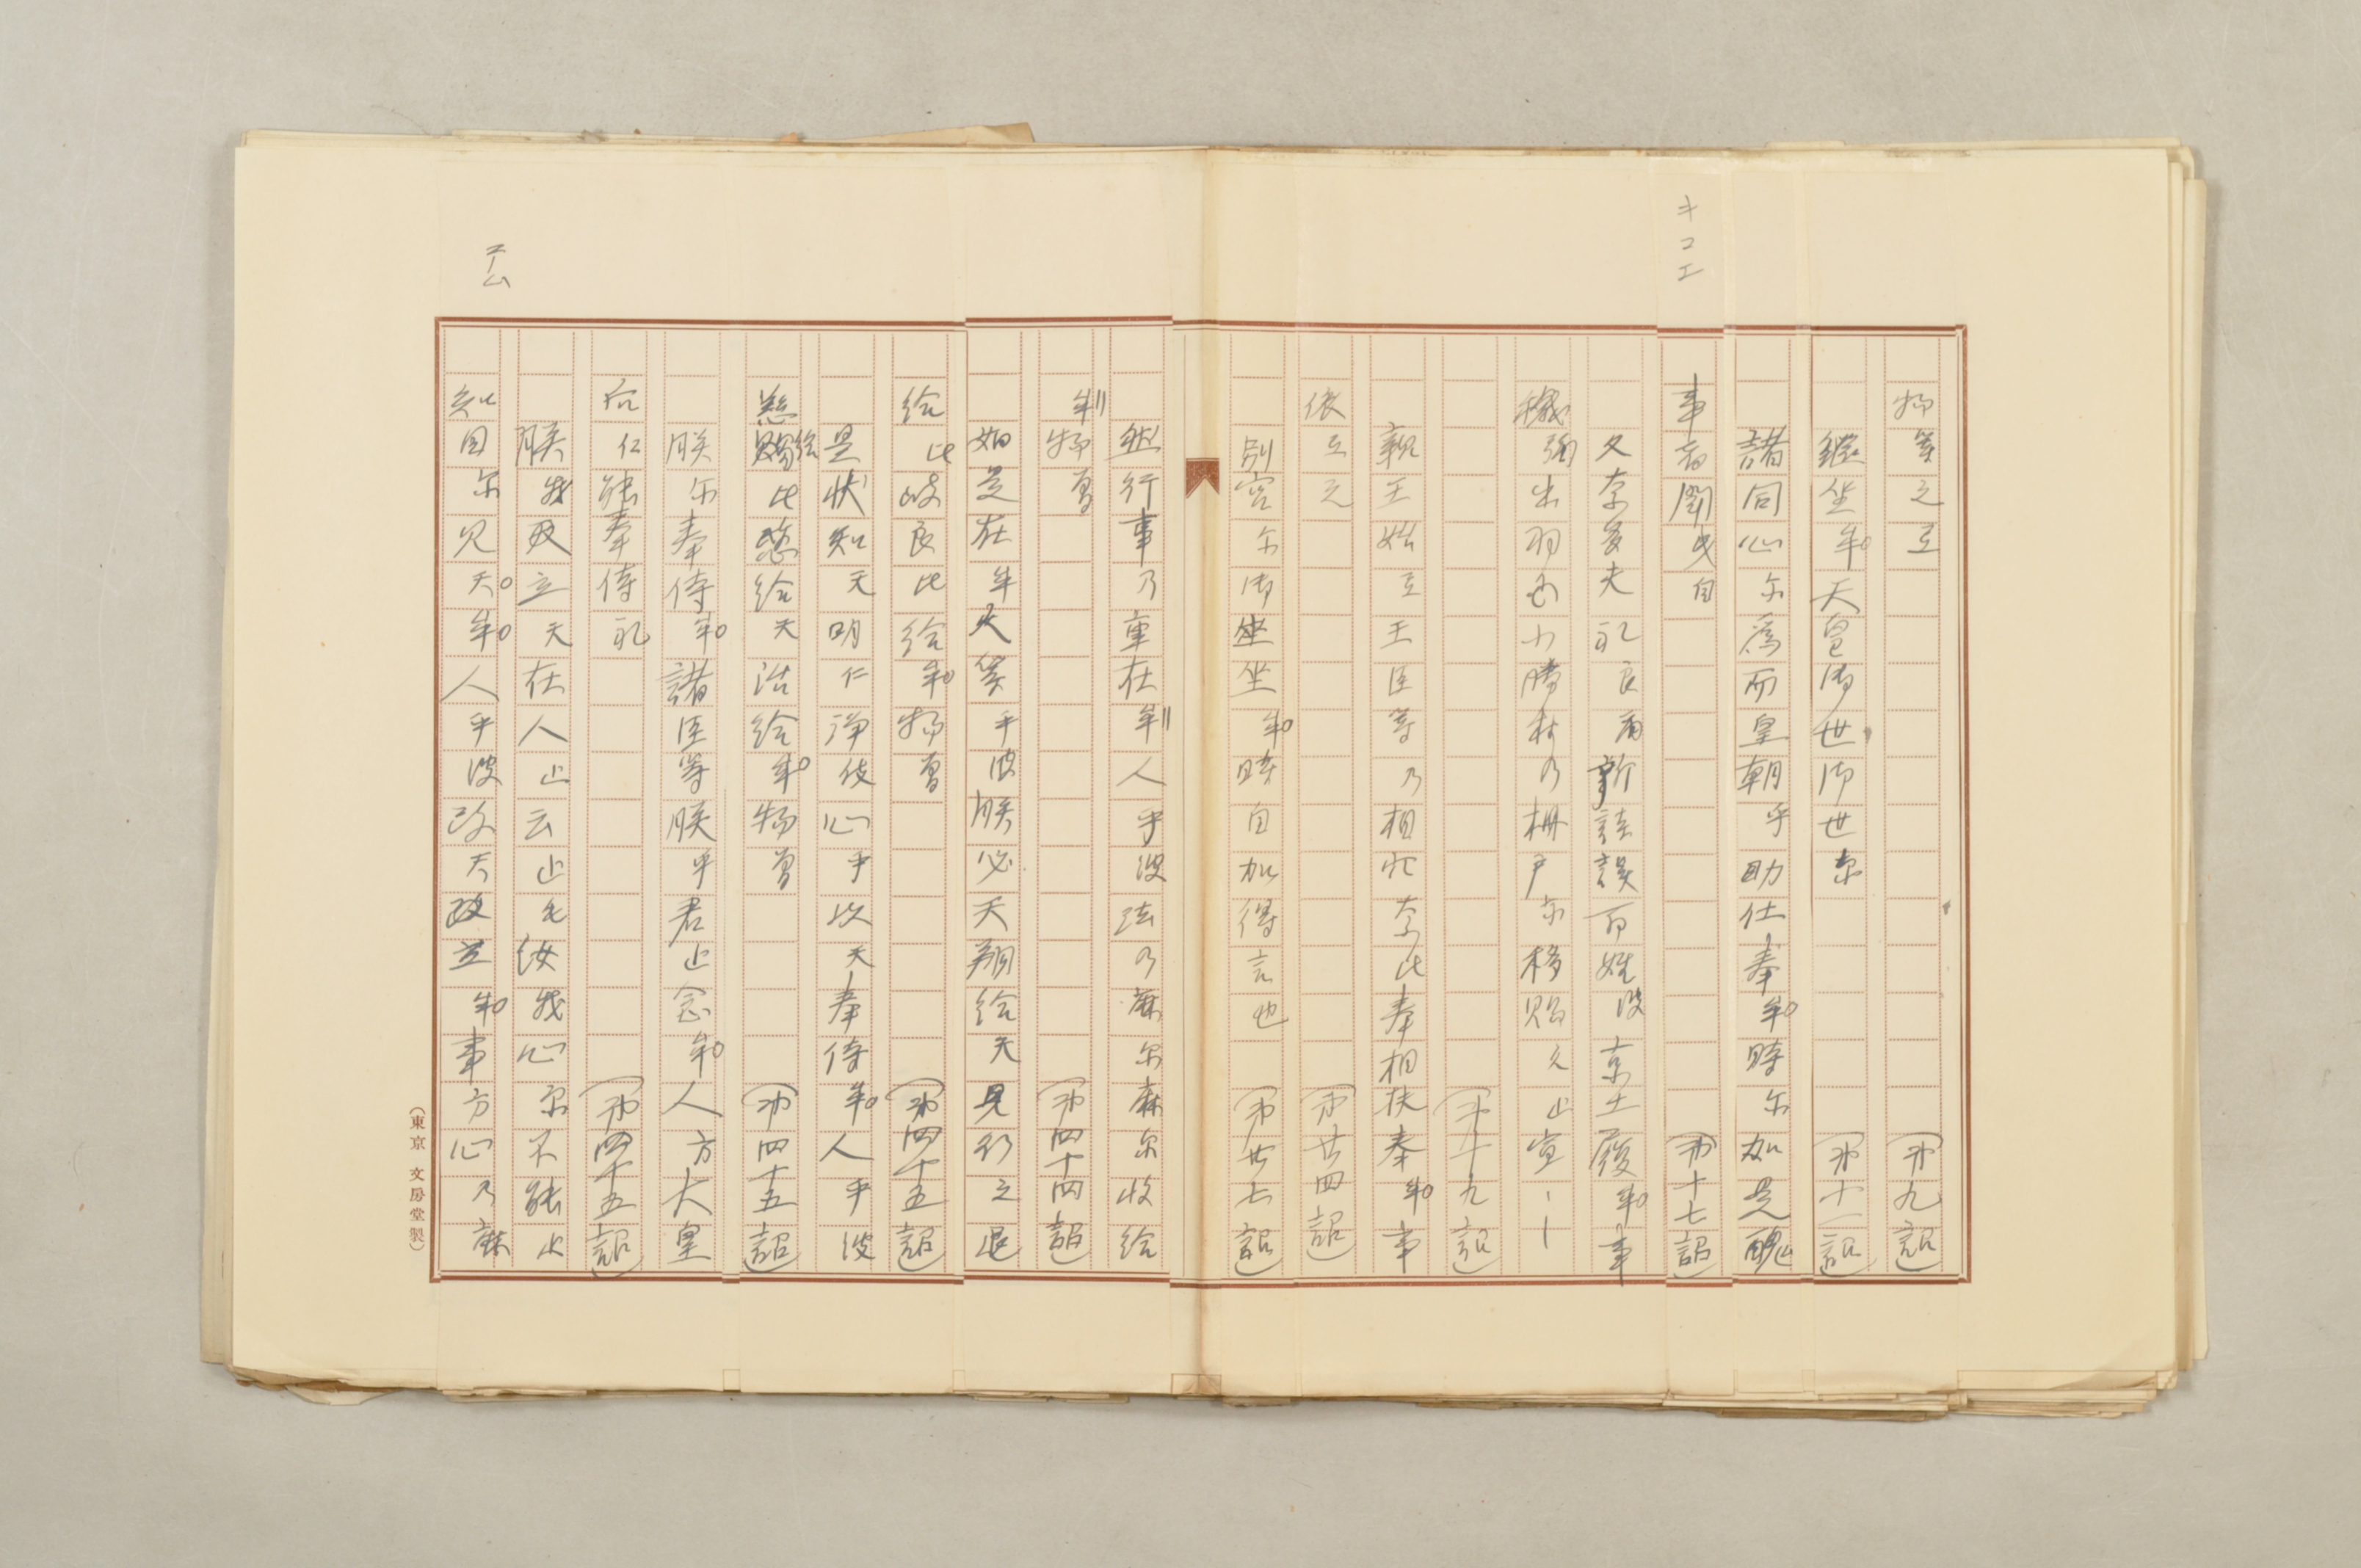 キコエ
物等之立 (第九詔)
継坐牟天皇御世御世尓 (第十一詔)
諸同心尓為而皇朝乎助仕奉牟時尓如是醜
事者聞曳自 (第十七詔)
久奈多夫礼良
所詿誤百姓波京土履牟事
穢弥出羽国小勝村乃柵戸尓移賜久止宣
(第十九詔)
親王始王臣等乃相穴奈比奉相扶奉牟事
依立之 (第廿四詔)
別宮尓御坐坐牟時自加得言也 (第廿七詔)
然行事乃重在牟人乎波法乃麻尓麻尓収給
牟物曽 (第四十四詔)
如是在牟人等乎波朕必天翔給天見行之退
給比岐良比給牟物曽 (第四十五詔)
是状知天明仁浄伎心乎以天奉侍牟人乎波
慈賜給比愍給天治給牟物曽 (第四十五詔)
朕尓奉侍牟諸臣等朕乎君止念牟人方大皇
后仁能奉侍礼 (第四十五詔)
エム
朕我教立天在人止云止毛汝我心尓不能止
知目尓見天牟人乎波改天立牟事方心乃麻
(東京 文房堂製)